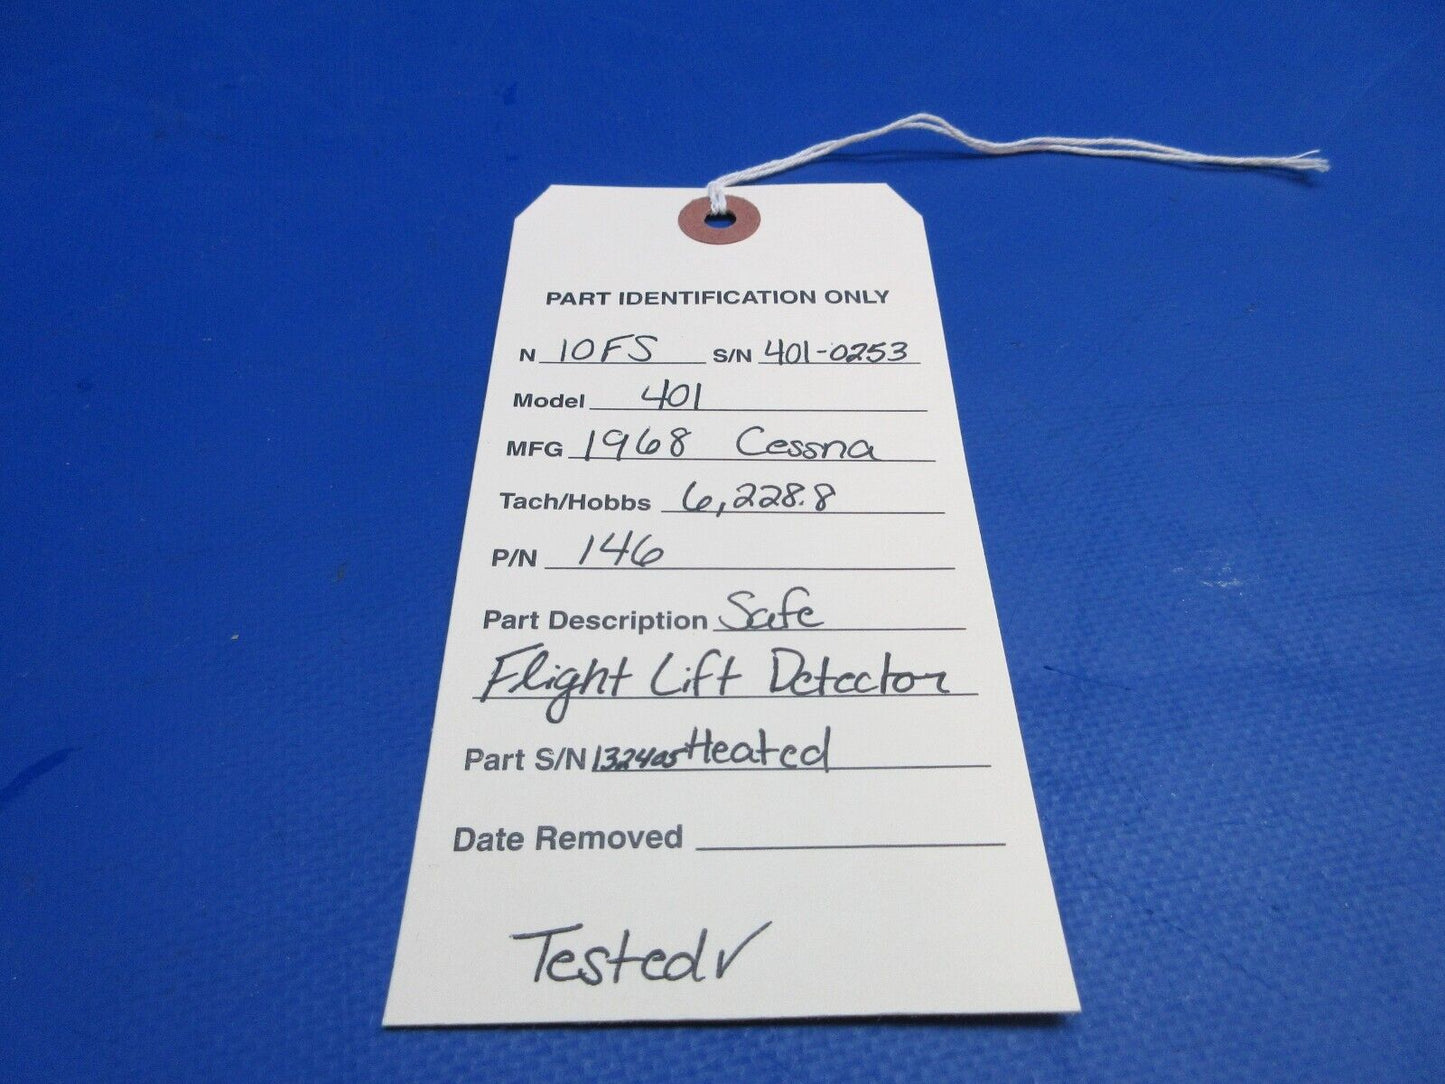 PART IDENTIFICATION ONLY
N 10FS S/N 401-0253
Model 401
MFG 1968 Cessna
Tach/Hobbs 6,228.8
P/N 146
Part Description Safe
Flight Lift Detector
Part S/N 132405 Heated
Date Removed
Tested ✓